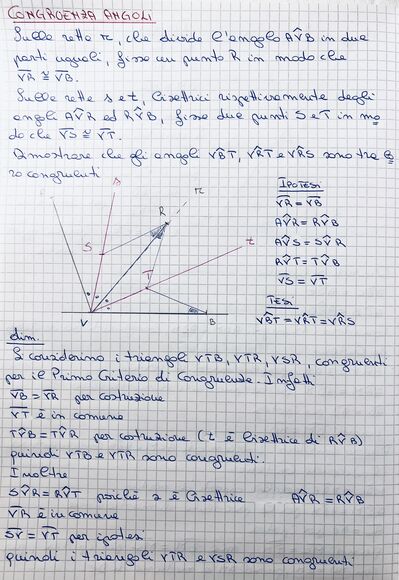 CONGRUENZA ANGOLI
Sulla retta r, che divide l'angolo AV̂B in due
parti uguali, fisso un punto R in modo che
VR ≅ VB.
Sulle rette s e t, bisettrici rispettivamente degli
angoli AV̂R ed RV̂B, fisso due punti S e T in mo
do che VS ≅ VT.
Dimostrare che gli angoli VB̂T, VR̂T e VR̂S sono tra lo
ro congruenti
s
r
R
S
t
T
V
B
IPOTESI
VR = VB
AV̂R = RV̂B
AV̂S = SV̂R
RV̂T = TV̂B
VS = VT
TESI
VB̂T = VR̂T = VR̂S
dim.
Si considerino i triangoli VTB, VTR, VSR, congruenti
per il Primo Criterio di Congruenza. Infatti
VB = VR per costruzione
VT è in comune
TV̂B = TV̂R per costruzione (t è bisettrice di RV̂B)
quindi VTB e VTR sono congruenti.
Inoltre
SV̂R = RV̂T poiché r è bisettrice AV̂R = RV̂B
VR è in comune
SV = VT per ipotesi
quindi i triangoli VTR e VSR sono congruenti